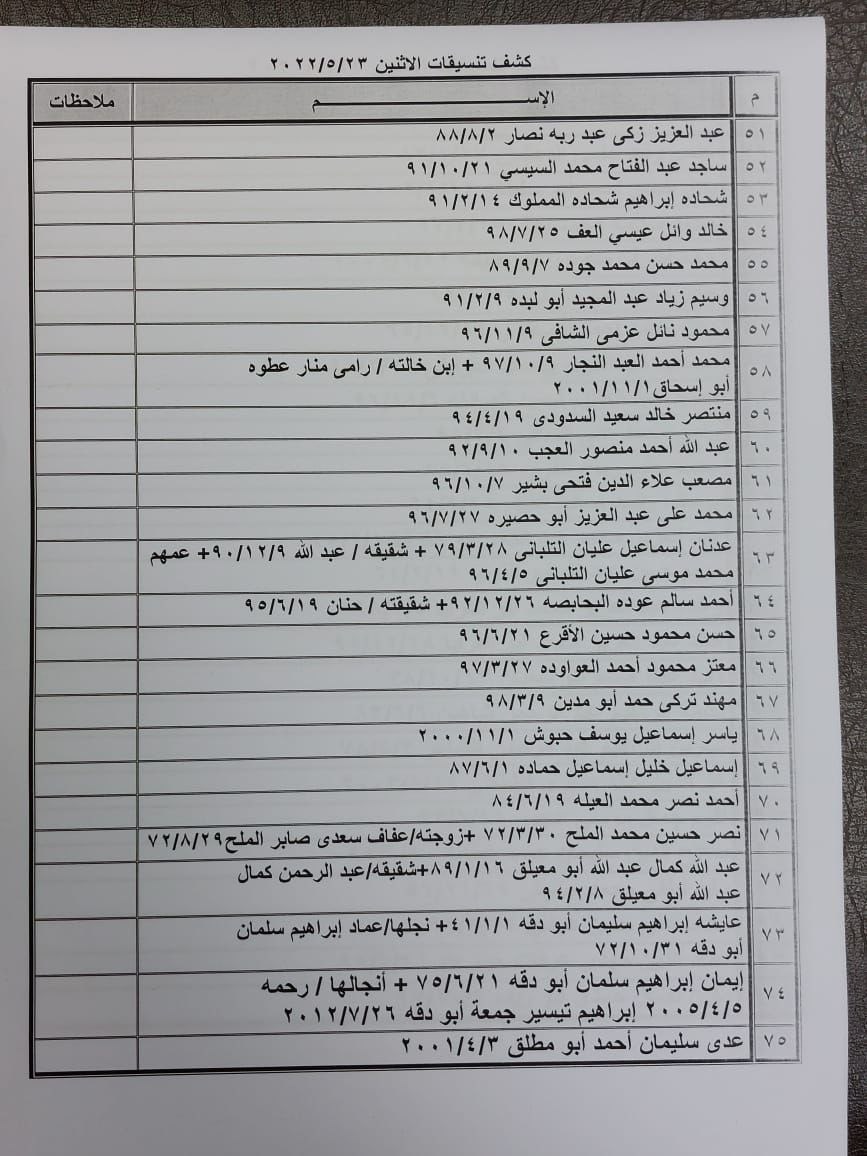 كشف تنسيقات الاثنين ٢٠٢٢/٥/٢٣
م الإســــــــم ملاحظات
٥١ عبد العزيز زكى عبد ربه نصار ٨٨/٨/٢
٥٢ ساجد عبد الفتاح محمد السيسي ٩١/١٠/٢١
٥٣ شحاده إبراهيم شحاده المملوك ٩١/٢/١٤
٥٤ خالد وائل عيسي العف ٩٨/٧/٢٥
٥٥ محمد حسن محمد جوده ٨٩/٩/٧
٥٦ وسيم زياد عبد المجيد أبو لبده ٩١/٢/٩
٥٧ محمود نائل عزمى الشافى ٩٦/١١/٩
٥٨ محمد أحمد العبد النجار ٩٧/١٠/٩ + إبن خالته / رامى منار عطوه
أبو إسحاق٢٠٠١/١١/١
٥٩ منتصر خالد سعيد السدودى ٩٤/٤/١٩
٦٠ عبد الله أحمد منصور العجب ٩٢/٩/١٠
٦١ مصعب علاء الدين فتحى بشير ٩٦/١٠/٧
٦٢ محمد على عبد العزيز أبو حصيره ٩٦/٧/٢٧
٦٣ عدنان إسماعيل عليان التلبانى ٧٩/٣/٢٨ + شقيقه / عبد الله ٩٠/١٢/٩+ عمهم
محمد موسى عليان التلبانى ٩٦/٤/٥
٦٤ أحمد سالم عوده البحابصه ٩٢/١٢/٢٦+ شقيقته / حنان ٩٥/٦/١٩
٦٥ حسن محمود حسين الأقرع ٩٦/٦/٢١
٦٦ معتز محمود أحمد العواوده ٩٧/٣/٢٧
٦٧ مهند تركى حمد أبو مدين ٩٨/٣/٩
٦٨ ياسر إسماعيل يوسف حبوش ٢٠٠٠/١١/١
٦٩ إسماعيل خليل إسماعيل حماده ٨٧/٦/١
٧٠ أحمد نصر محمد العيله ٨٤/٦/١٩
٧١ نصر حسين محمد الملح ٧٢/٣/٣٠ +زوجته/عفاف سعدى صابر الملح٧٢/٨/٢٩
٧٢ عبد الله كمال عبد الله أبو معيلق ٨٩/١/١٦+شقيقه/عبد الرحمن كمال
عبد الله أبو معيلق ٩٤/٢/٨
٧٣ عايشه إبراهيم سليمان أبو دقه ٤١/١/١+ نجلها/عماد إبراهيم سلمان
أبو دقه ٧٢/١٠/٣١
٧٤ إيمان إبراهيم سلمان أبو دقه ٧٥/٦/٢١ + أنجالها / رحمه
٢٠٠٥/٤/٥ إبراهيم تيسير جمعة أبو دقه ٢٠١٢/٧/٢٦
٧٥ عدى سليمان أحمد أبو مطلق ٢٠٠١/٤/٣